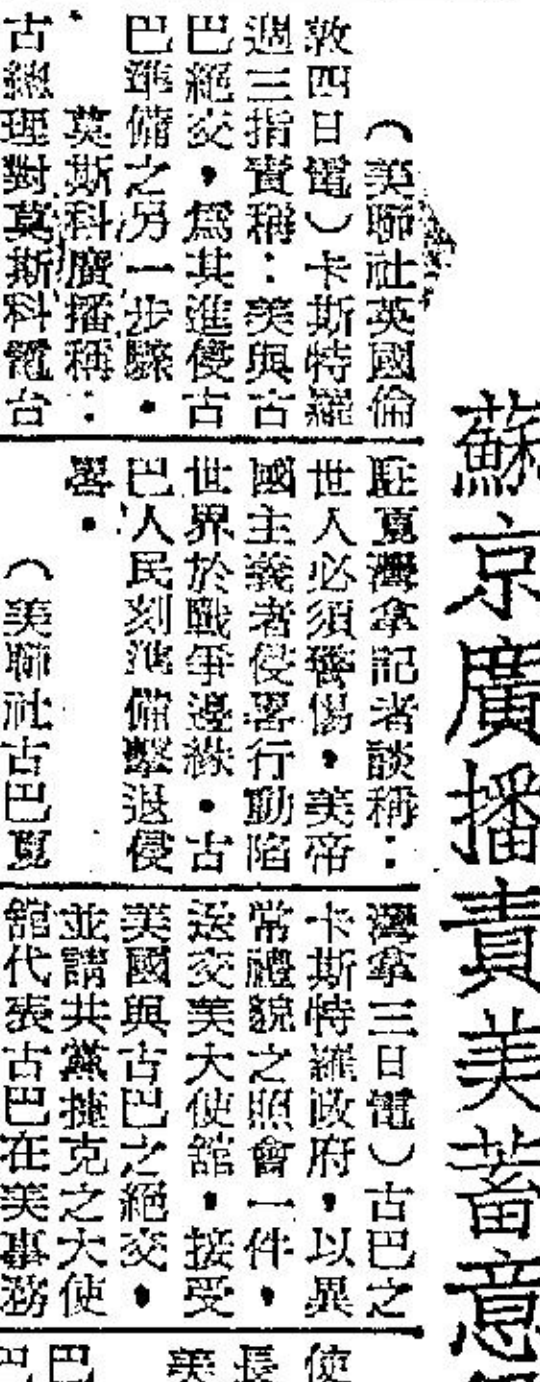 蘇京廣播責美蓄意
（美聯社英國倫
敦四日電）卡斯特羅
週三指責稱：美與古
巴絕交，為其進侵古
巴準備之另一步驟。
莫斯科廣播稱：
古總理對莫斯科電台
駐夏灣拿記者談稱：
世人必須警惕，美帝
國主義者侵畧行動陷
世界於戰爭邊緣。古
巴人民刻準備擊退侵
畧。
（美聯社古巴夏
灣拿三日電）古巴之
卡斯特羅政府，以異
常禮貌之照會一件，
送交美大使館，接受
美國與古巴之絕交，
並請共黨捷克之大使
舘代表古巴在美事務
使
長
美
巴
巴